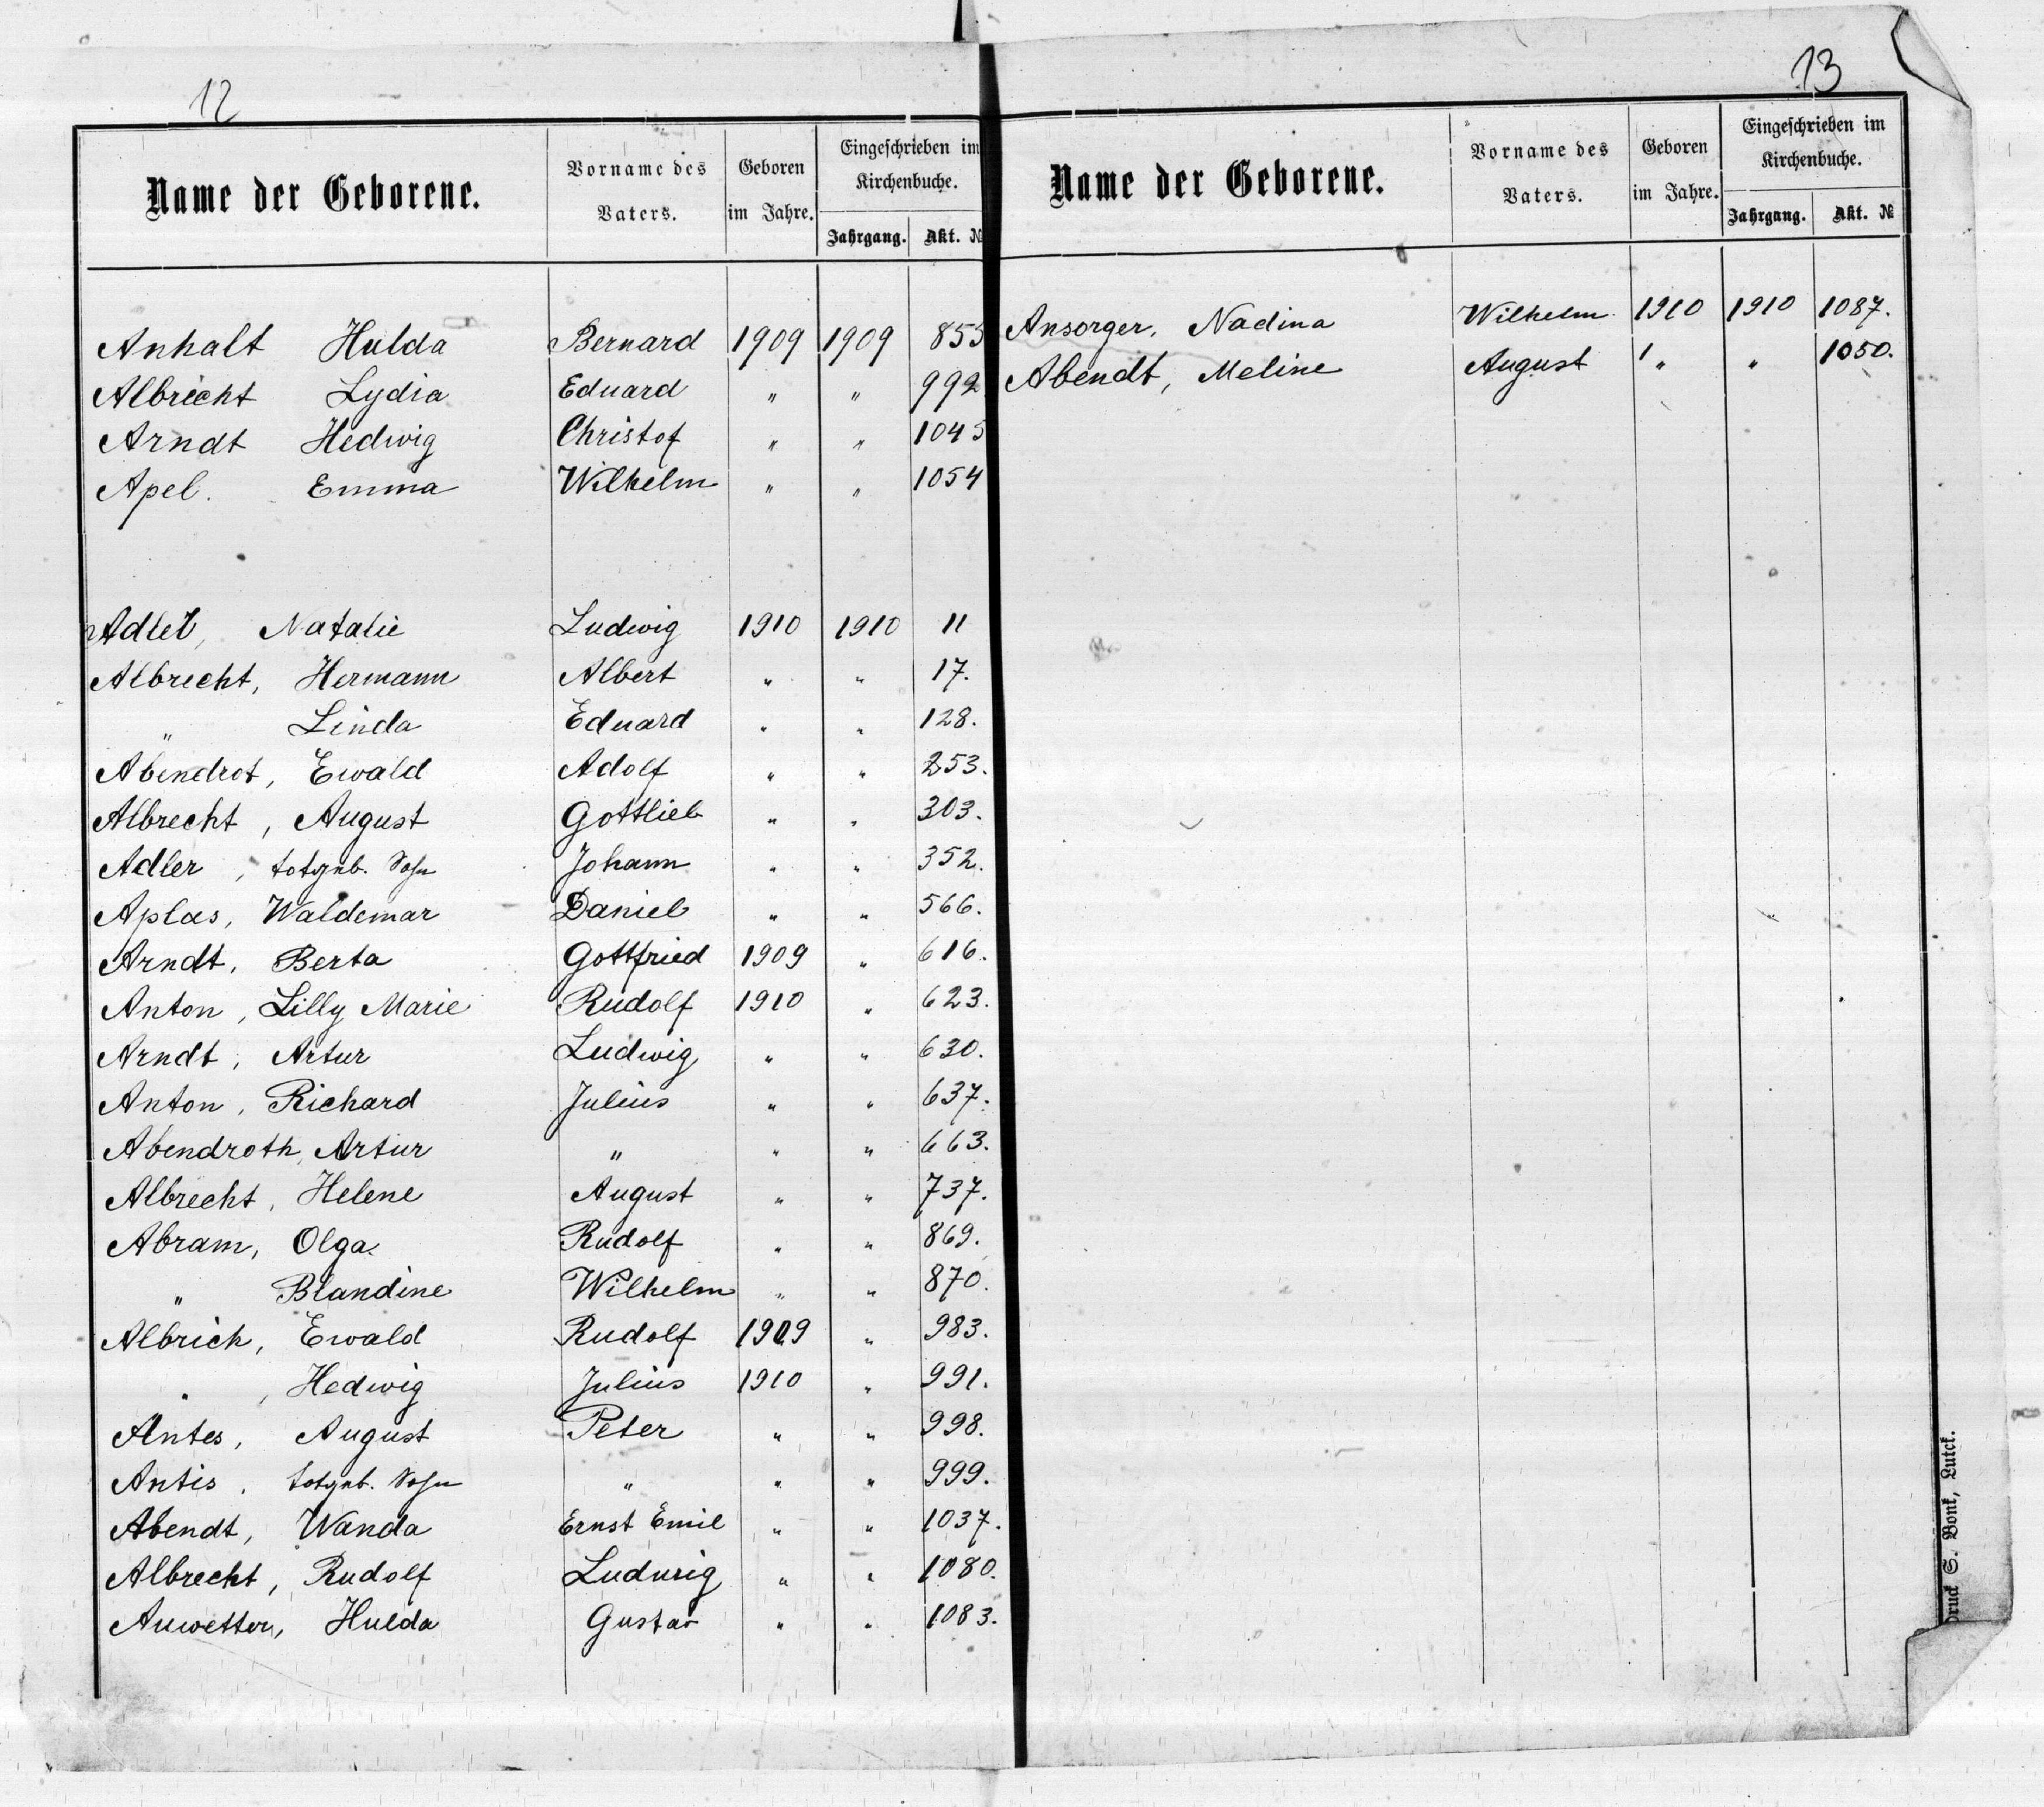 12
Name der Geborene. Vorname des Vaters. Geboren im Jahre. Eingeschrieben im Kirchenbuche. Jahrgang. Akt. №
Anhalt Hulda Bernard 1909 1909 855
Albrecht Lydia Eduard " " 992
Arndt Hedwig Christof " " 1045
Apel. Emma Wilhelm " " 1054
Adler, Natalie Ludwig 1910 1910 11
Albrecht, Hermann Albert " " 17.
" Linda Eduard " " 128.
Abendrot, Ewald Adolf " " 253.
Albrecht, August Gottlieb " " 303.
Adler, totgeb. Sohn Johann " " 352.
Aplas, Waldemar Daniel " " 566.
Arndt, Berta Gottfried 1909 " 616.
Anton, Lilly Marie Rudolf 1910 " 623.
Arndt, Artur Ludwig " " 630.
Anton, Richard Julius " " 637.
Abendroth, Artur " " " 663.
Albrecht, Helene August " " 737.
Abram, Olga. Rudolf " " 869.
" Blandine Wilhelm " " 870.
Albrich, Ewald Rudolf 1909 " 983.
" , Hedwig Julius 1910 " 991.
Antes, August Peter " " 998.
Antis, totgeb. Sohn " " " 999.
Abendt, Wanda Ernst Emil " " 1037.
Albrecht, Rudolf Ludwig " " 1080.
Auwetter, Hulda Gustav " " 1083.
13
Name der Geborene. Vorname des Vaters. Geboren im Jahre. Eingeschrieben im Kirchenbuche. Jahrgang. Akt. №
Ansorger, Nadina Wilhelm 1910 1910 1087.
Abendt, Meline August " " 1050.
Druck S. Bonk, Lutck.